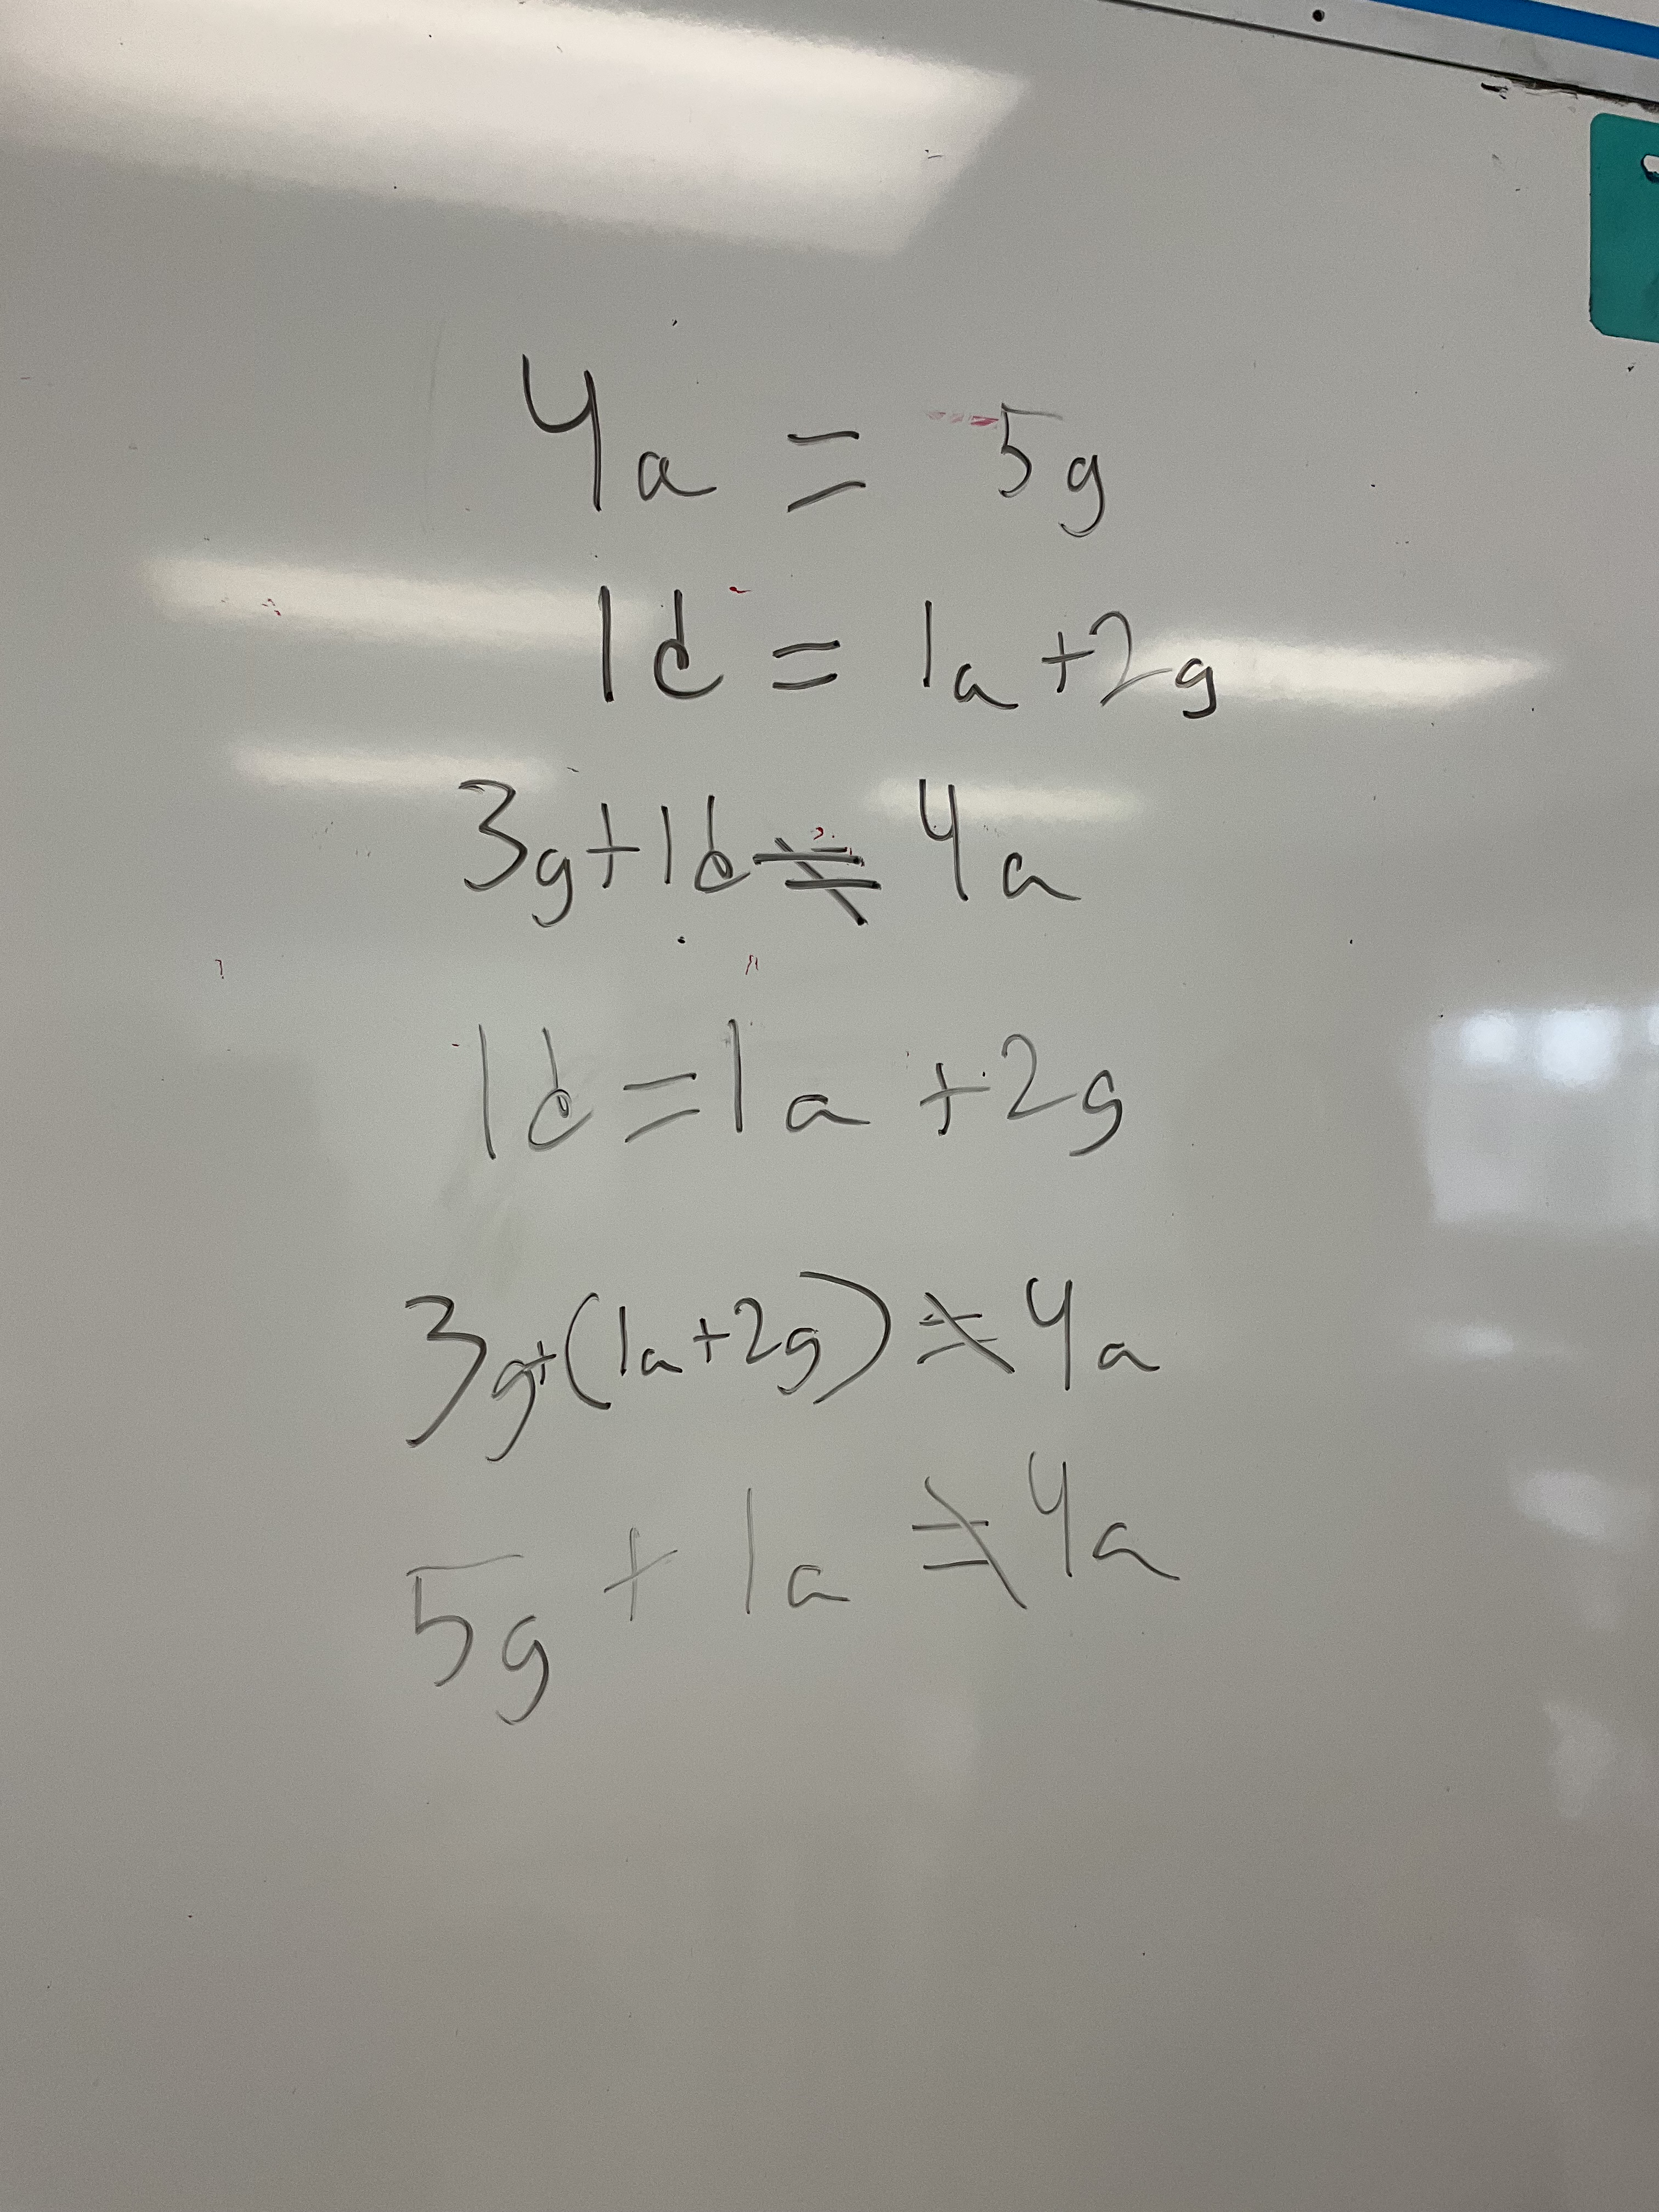 4a = 5g
1d = 1a + 2g
3g + 1d ≠ 4a
1d = 1a + 2g
3g + (1a + 2g) ≠ 4a
5g + 1a ≠ 4a